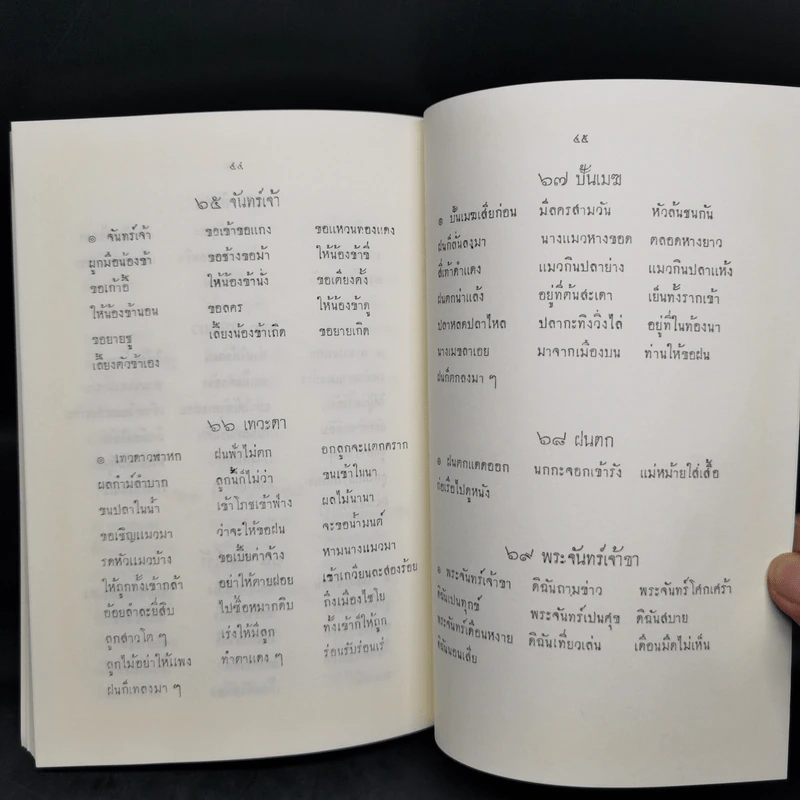 ๔๔
๖๕ จันทร์เจ้า
๏ จันทร์เจ้า ขอเข้าขอแกง ขอแหวนทองแดง
ผูกมือน้องข้า ขอช้างขอม้า ให้น้องข้าขี่
ขอเก้าอี้ ให้น้องข้านั่ง ขอเตียงตั้ง
ให้น้องข้านอน ขอลคร ให้น้องข้าดู
ขอยายชู เลี้ยงน้องข้าเถิด ขอยายเกิด
เลี้ยงตัวข้าเอง
๖๖ เทวะดา
๏ เทวดาวพาหก ฝนฟ้าไม่ตก อกลูกจะแตกคราก
ผลก๋าม์ลำบาก ลูกนี้ก็ไม่ว่า ชนเข้าในนา
ชนปลาในน้ำ เข้าโภชเข้าฟ่าง ผลไม้นานา
ขอเชิญแมวมา ว่าจะให้ขอฝน จะขอน้ำมนต์
รดหัวแมวบ้าง ขอเบี้ยค่าจ้าง หามนางแมวมา
ให้ถูกทั้งเข้ากล้า อย่าให้ตายฝอย เข้าเกวียนละสองร้อย
อ้อยลำละยี่สิบ ไปซื้อหมากดิบ ถึงเมืองไชโย
ลูกสาวโต ๆ เร่งให้มีลูก ทั้งเข้าก็ให้ถูก
ลูกไม้อย่าให้แพง ทำตาแดง ๆ ร่อนรับร่อนเร่
ฝนก็เทลงมา ๆ
๔๕
๖๗ ปั้นเมฆ
๏ ปั้นเมฆเสียก่อน มีลครสามวัน หัวล้นชนกัน
ฝนก็ลั่นลงมา นางแมวหางขอด ตลอดหางยาว
สี่เท้าด่ำแดง แมวกินปลาย่าง แมวกินปลาแห้ง
ฝนตกน่าแล้ง อยู่ที่ต้นสะเดา เย็นทั้งรากเข้า
ปลาหลดปลาไหล ปลากะทิงวิ่งไล่ อยู่ที่ในท้องนา
นางเมขลาเอย มาจากเมืองบน ท่านให้ขอฝน
ฝนก็ตกลงมา ๆ
๖๘ ฝนตก
๏ ฝนตกแดดออก นกกะจอกเข้ารัง แม่หม้ายใส่เสื้อ
ถ่อเรือไปดูหนัง
๖๙ พระจันทร์เจ้าขา
๏ พระจันทร์เจ้าขา ดิฉันถามข่าว พระจันทร์โศกเศร้า
ดิฉันเปนทุกข์ พระจันทร์เปนศุข ดิฉันสบาย
พระจันทร์เดือนหงาย ดิฉันเที่ยวเล่น เดือนมืดไม่เห็น
ดิฉันนอนเสีย